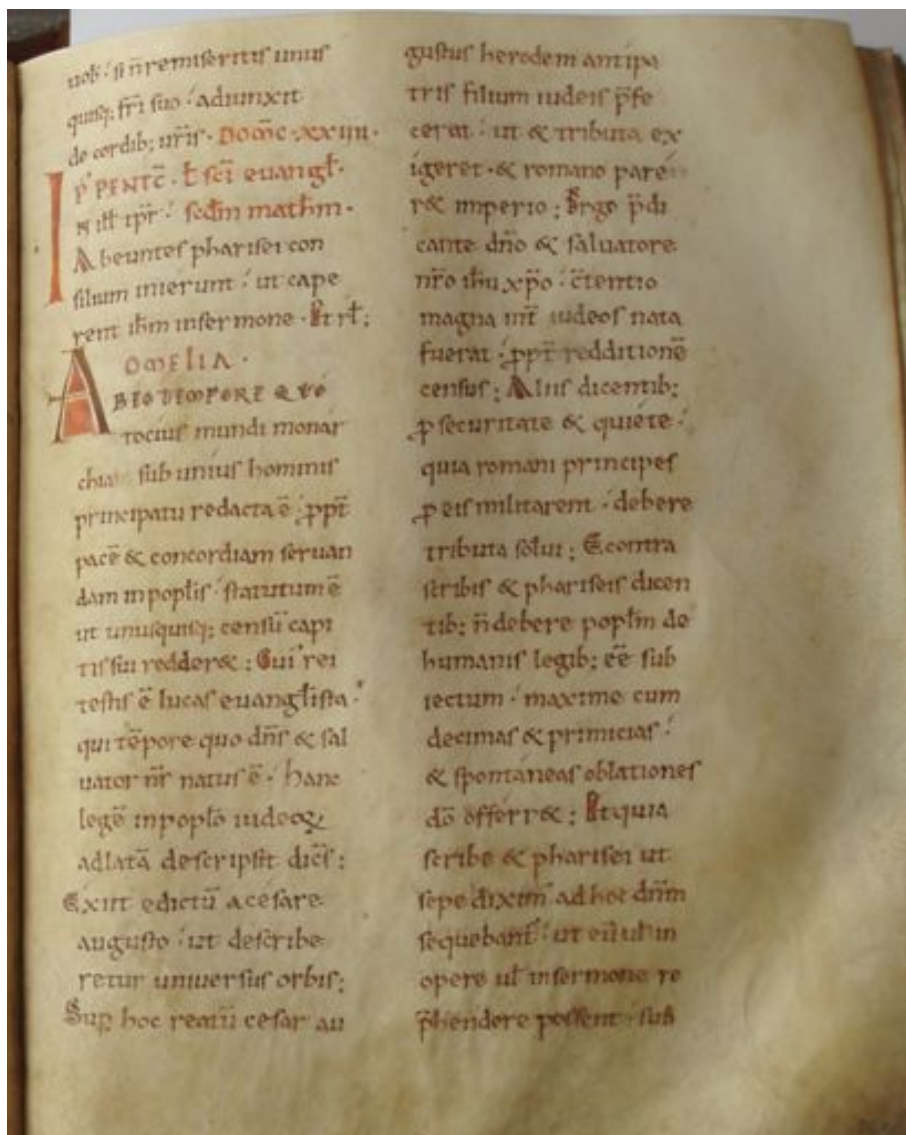 uob· si n̄ remiseritis unus
quisq; fr̄i suo· adiunxit
de cordib; ur̄is· DOM̄C·XXIIII·
p' PENTC̄· ł sc̄i euangł·
IN ił̄ł tp̄r· secdm̄ math̄m·
Abeuntes pharisei con
silium inierunt· ut cape
rent ih̄m in sermone· Et rł;
OMELIA·
AB EO TEMPORE QUO
tocius mundi monar
chia sub unius hominis
principatu redacta ē· ꝓpt̄
pacē & concordiam seruan
dam in popłis· statutum ē
ut unusquisq; censū capi
tis sui redder&; Cui rei
testis ē lucas euangłista·
qui tēpore quo dn̄s & sal
uator nr̄ natus ē· hanc
legē in popło iudeoꝝ
adlatā descripsit dic̄s;
Exiit edictū a cesare
augusto· ut describe
retur uniuersus orbis;
Suꝑ hoc reatū cesar au
gustus herodem antipa
tris filium iudeis p̄fe
cerat· ut & tributa ex
igeret· & romano pare
r& imperio; Ergo p̄di
cante dn̄o & saluatore
nr̄o ih̄u xp̄o· c̄tentio
magna int̄ iudeos nata
fuerat· ꝓpt̄ redditionē
census; Aliis dicentib;
ꝓ securitate & quiete·
quia romani principes
ꝓ eis militarent· debere
tributa solui; Econtra
scribis & phariseis dicen
tib; n̄ debere popłm de
humanis legib; eē sub
iectum· maxime cum
decimas & primicias·
& spontaneas oblationes
dō offerr&; Et quia
scribe & pharisei ut
sepe dixim' ad hoc dn̄m
sequebant̄· ut eū uł in
opere uł in sermone re
p̄hendere possent· sub